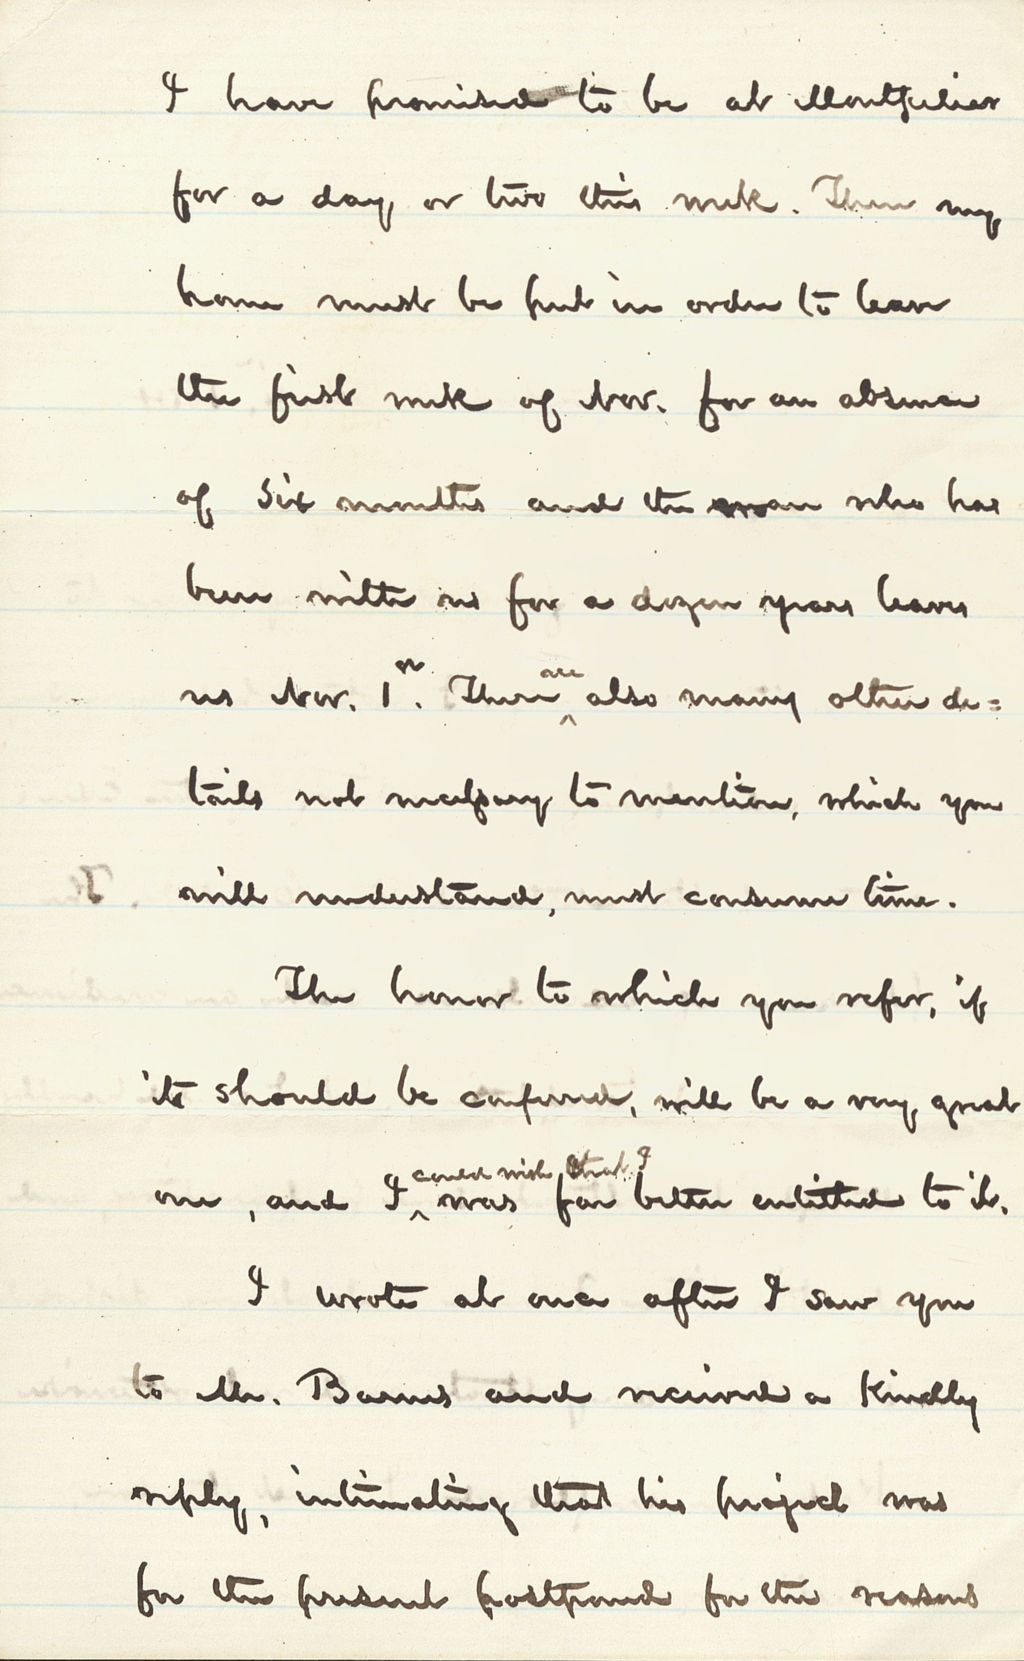 I have promised to be at Montpelier
for a day or two this week. Then my
home must be put in order to leave
the first week of Nov. for an absence
of six months and the man who has
been with us for a dozen years leaves
us Nov. 1st. There are also many other de=
tails not necessary to mention, which you
will understand, must consume time.
The honor to which you refer, if
it should be conferred, will be a very great
one, and I could wish that I was far better entitled to it.
I wrote at once after I saw you
to Mr. Barnes and received a kindly
reply, intimating that his project was
for the present postponed for the reasons